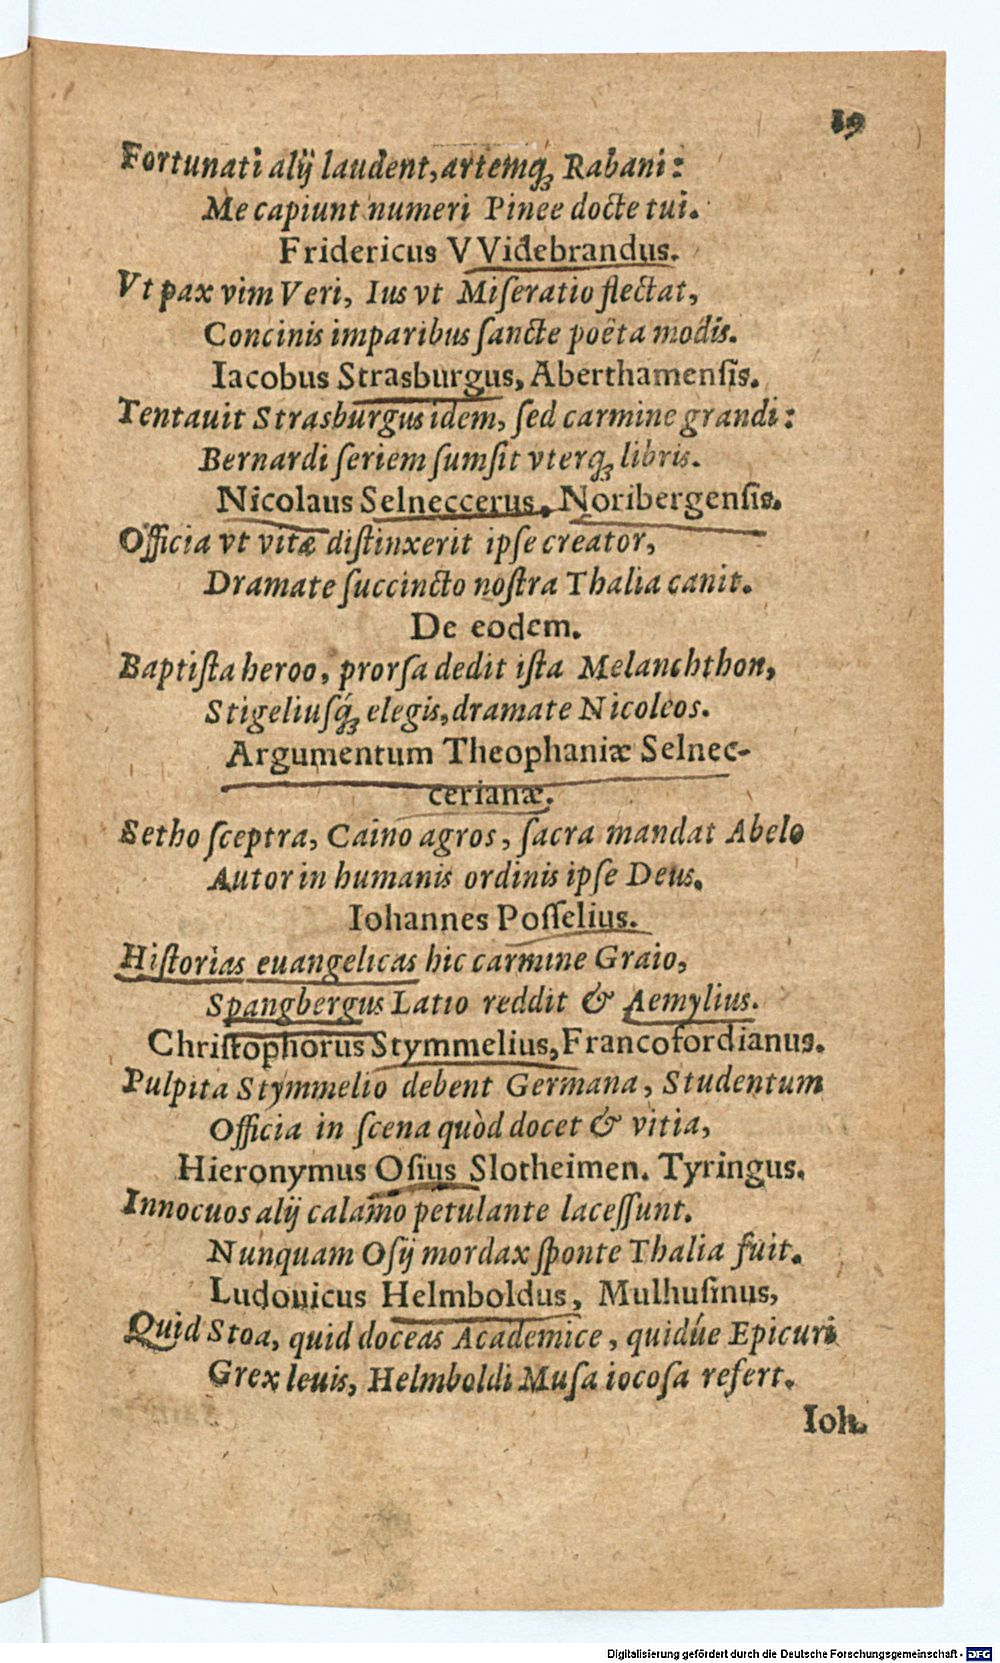 19
Fortunati alij laudent, artemqꝫ Rabani:
Me capiunt numeri Pinee docte tui.
Fridericus VVidebrandus.
Vt pax vim Veri, Ius vt Miſeratio flectat,
Concinis imparibus ſancte poëta modis.
Iacobus Strasburgus, Aberthamenſis.
Tentauit Strasburgus idem, ſed carmine grandi:
Bernardi ſeriem ſumſit vterqꝫ libris.
Nicolaus Selneccerus, Noribergenſis.
Officia vt vitæ diſtinxerit ipſe creator,
Dramate ſuccincto noſtra Thalia canit.
De eodem.
Baptiſta heroo, prorſa dedit iſta Melanchthon,
Stigeliuſq́ꝫ elegis, dramate Nicoleos.
Argumentum Theophaniæ Selnec-
cerianæ.
Setho ſceptra, Caino agros, ſacra mandat Abelo
Autor in humanis ordinis ipſe Deus.
Iohannes Poſſelius.
Hiſtorias euangelicas hic carmine Graio,
Spangbergus Latio reddit & Aemylius.
Chriſtophorus Stymmelius, Francofordianus.
Pulpita Stymmelio debent Germana, Studentum
Officia in ſcena quòd docet & vitia,
Hieronymus Oſius Slotheimen. Tyringus.
Innocuos alij calamo petulante laceſſunt.
Nunquam Oſij mordax ſponte Thalia fuit.
Ludouicus Helmboldus, Mulhuſinus,
Quid Stoa, quid doceas Academice, quidúe Epicuri
Grex leuis, Helmboldi Muſa iocoſa refert.
Ioh.
Digitalisierung gefördert durch die Deutsche Forschungsgemeinschaft - DFG